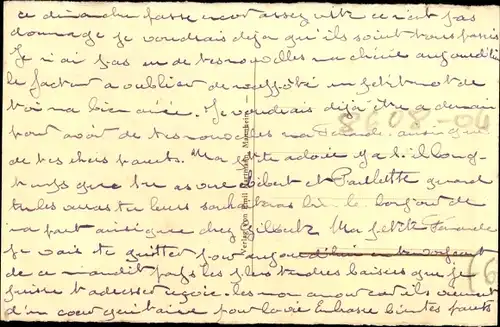 ce dimanche passe encore assez vite ce n'est pas
dommage je voudrais deja qu'ils soient tous passés
Je n'ai pas eu de tes nouvelles ma chérie aujourd'hui
le facteur a oublier de m'apporté un petit mot de
toi ma bien aimée. Je voudrais déja être a demain
pour avoir de tes nouvelles ma ainsi que
de tes chers parents. Ma petite adorée y a t. il long-
temps que tu as vue Gilbert et Paulette quand
tu les auras tu leurs souhaiteras bien le bonjour de
ma part ainsi que chez Gilbert. Ma petite
je vais te quitter pour aujourd'hui en t'envoyant
de ce maudit pays les plus tendres baisers que je
puisse t'adresser reçois les mon amour car ils viennent
d'un coeur qui t'aime pour la vie Embrasse bien tes parents
8608-04
Verlag von Emil Mannheim